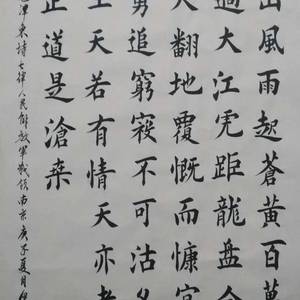 山風雨起蒼黃百萬
過大江虎距龍盤今
天翻地覆慨而慷宜
勇追窮寇不可沽名
王天若有情天亦老
正道是滄桒
澤東詩七律人民解放軍領南京庚子夏月